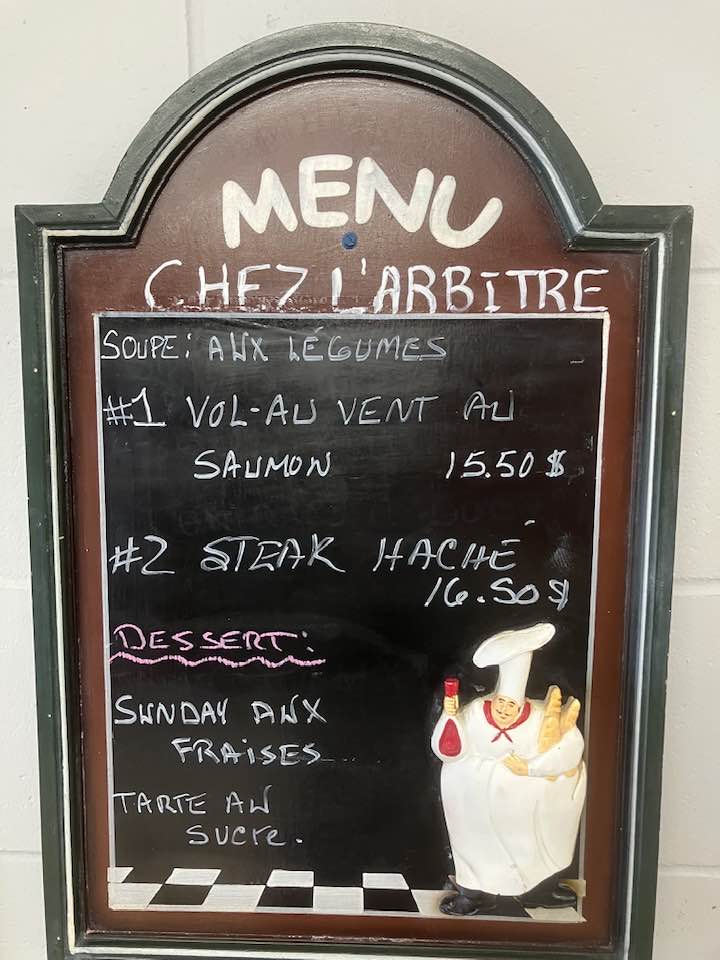 MENU
CHEZ L'ARBITRE
SOUPE: AUX LÉGUMES
#1 VOL-AU VENT AU
SAUMON 15.50 $
#2 STEAK HACHÉ
16.50 $
DESSERT:
SUNDAY AUX
FRAISES
TARTE AU
SUCRE.